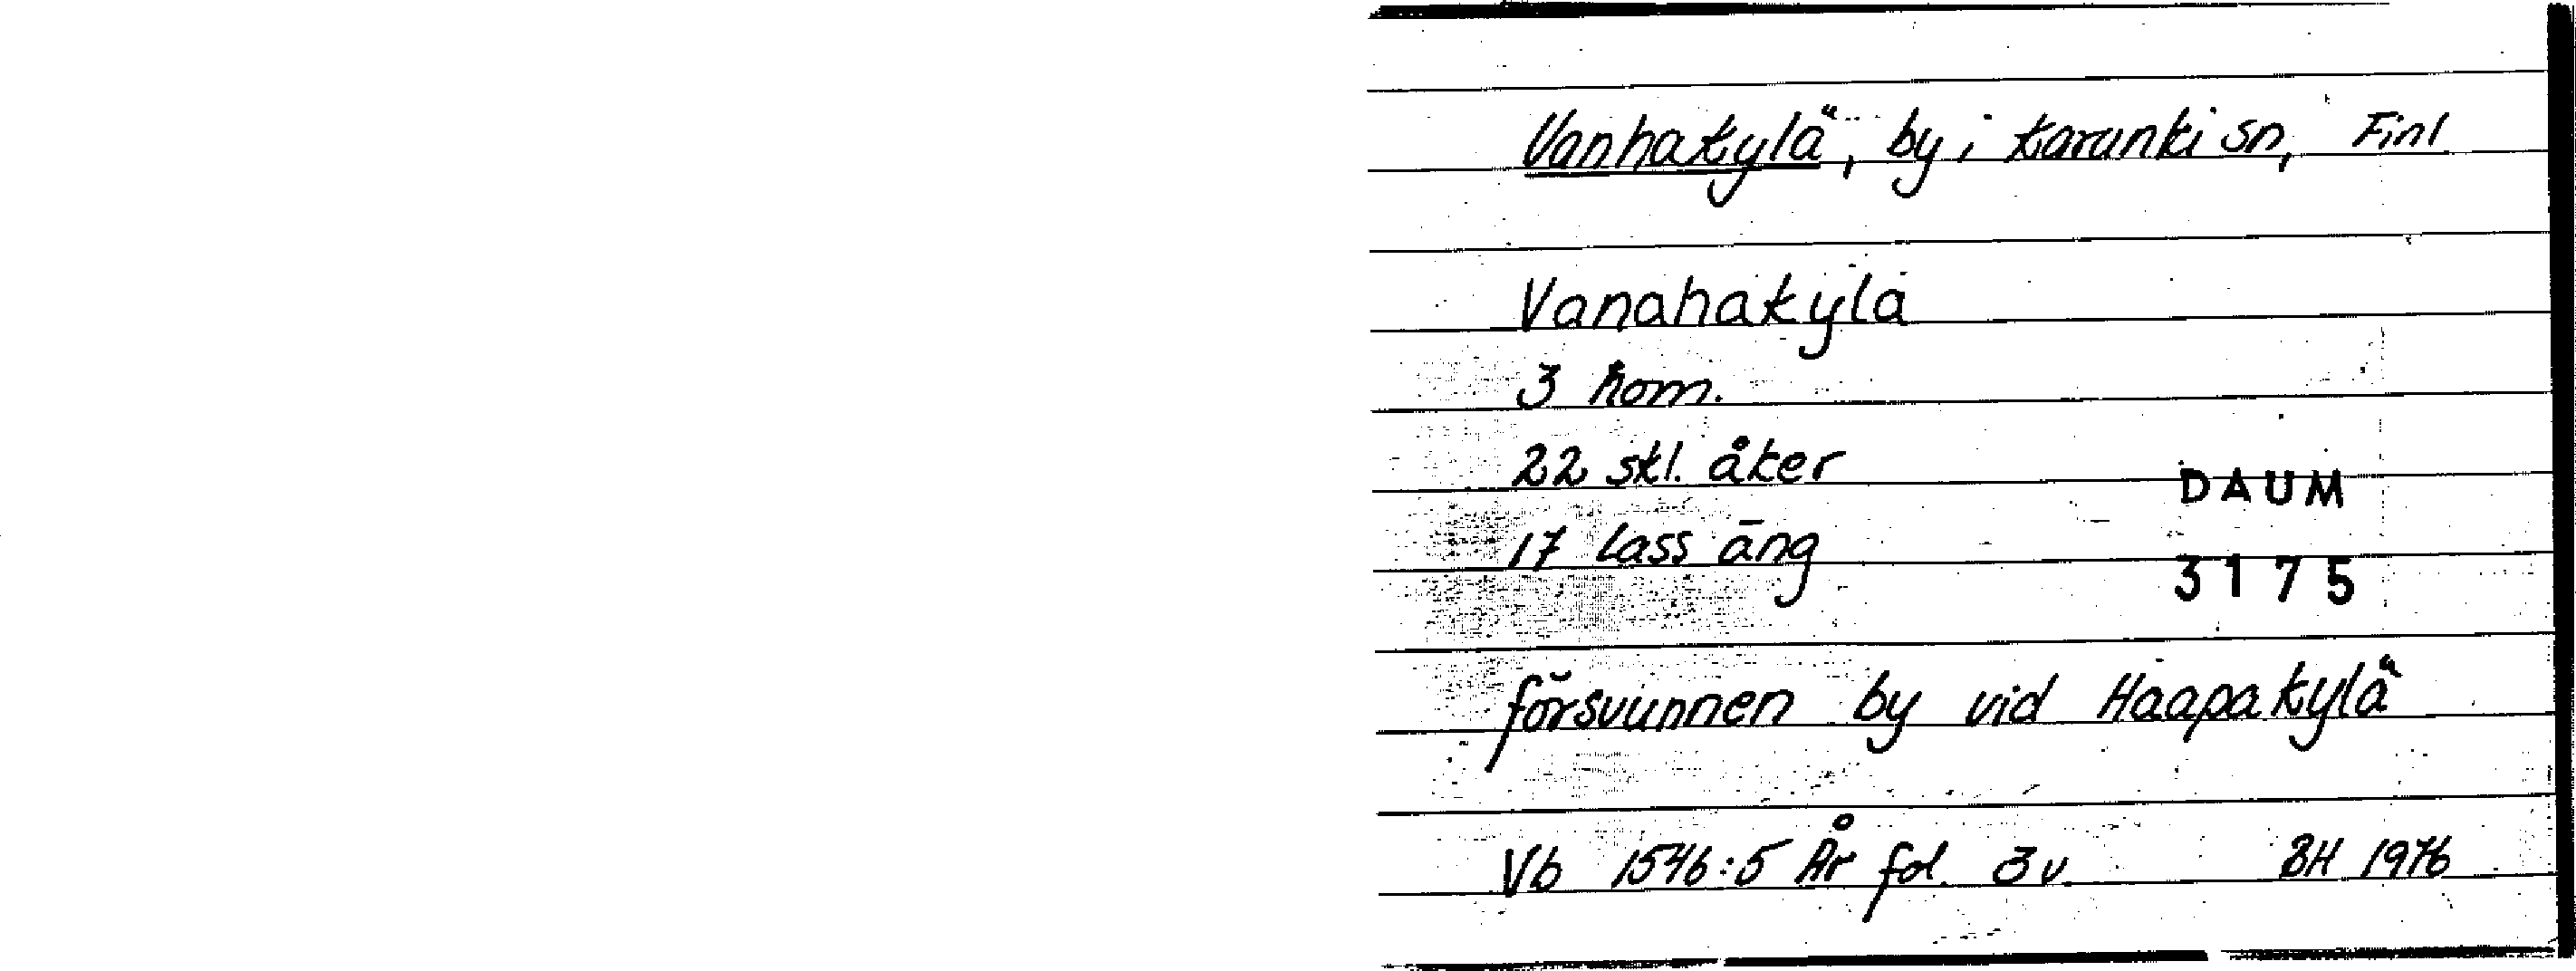 Vanhakylä, by i Karunki sn, Finl
Vanahakylä
3 hom.
22 skl. åker
DAUM
17 lass äng
3175
försvunnen by vid Haapakylä
Vb 1546:5 År fol. 3v BH 1976